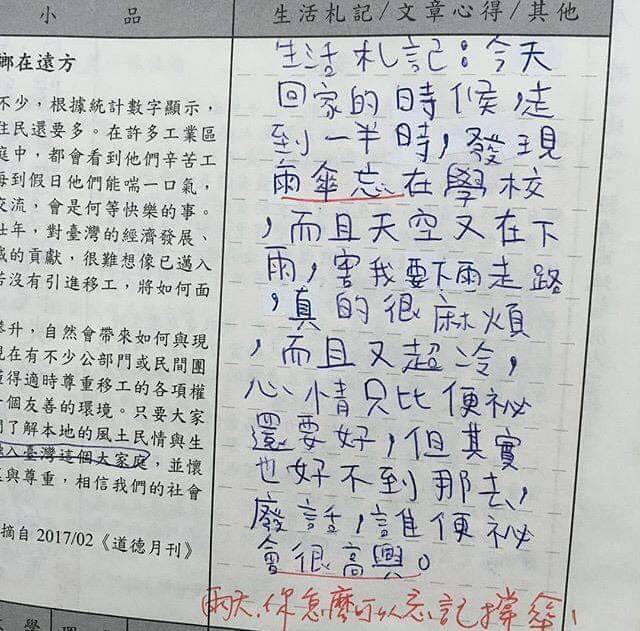 小品
鄉在遠方
不少，根據統計數字顯示，
住民還要多。在許多工業區
庭中，都會看到他們辛苦工
每到假日他們能喘一口氣，
交流，會是何等快樂的事。
壯年，對臺灣的經濟發展、
的貢獻，很難想像已邁入
若沒有引進移工，將如何面
攀升，自然會帶來如何與現
現在有不少公部門或民間團
懂得適時尊重移工的各項權
個友善的環境。只要大家
們了解本地的風土民情與生
入臺灣這個大家庭，並懷
與尊重，相信我們的社會
摘自 2017/02《道德月刊》
生活札記/文章心得/其他
生活札記：今天
回家的時候，走
到一半時，發現
雨傘忘在學校
，而且天空又在下
雨，害我要下雨走路
，真的很麻煩
，而且又超冷，
心情只比便祕
還要好，但其實
也好不到那去，
廢話，誰便祕
會很高興。
雨天，你怎麼可以忘記撐傘！